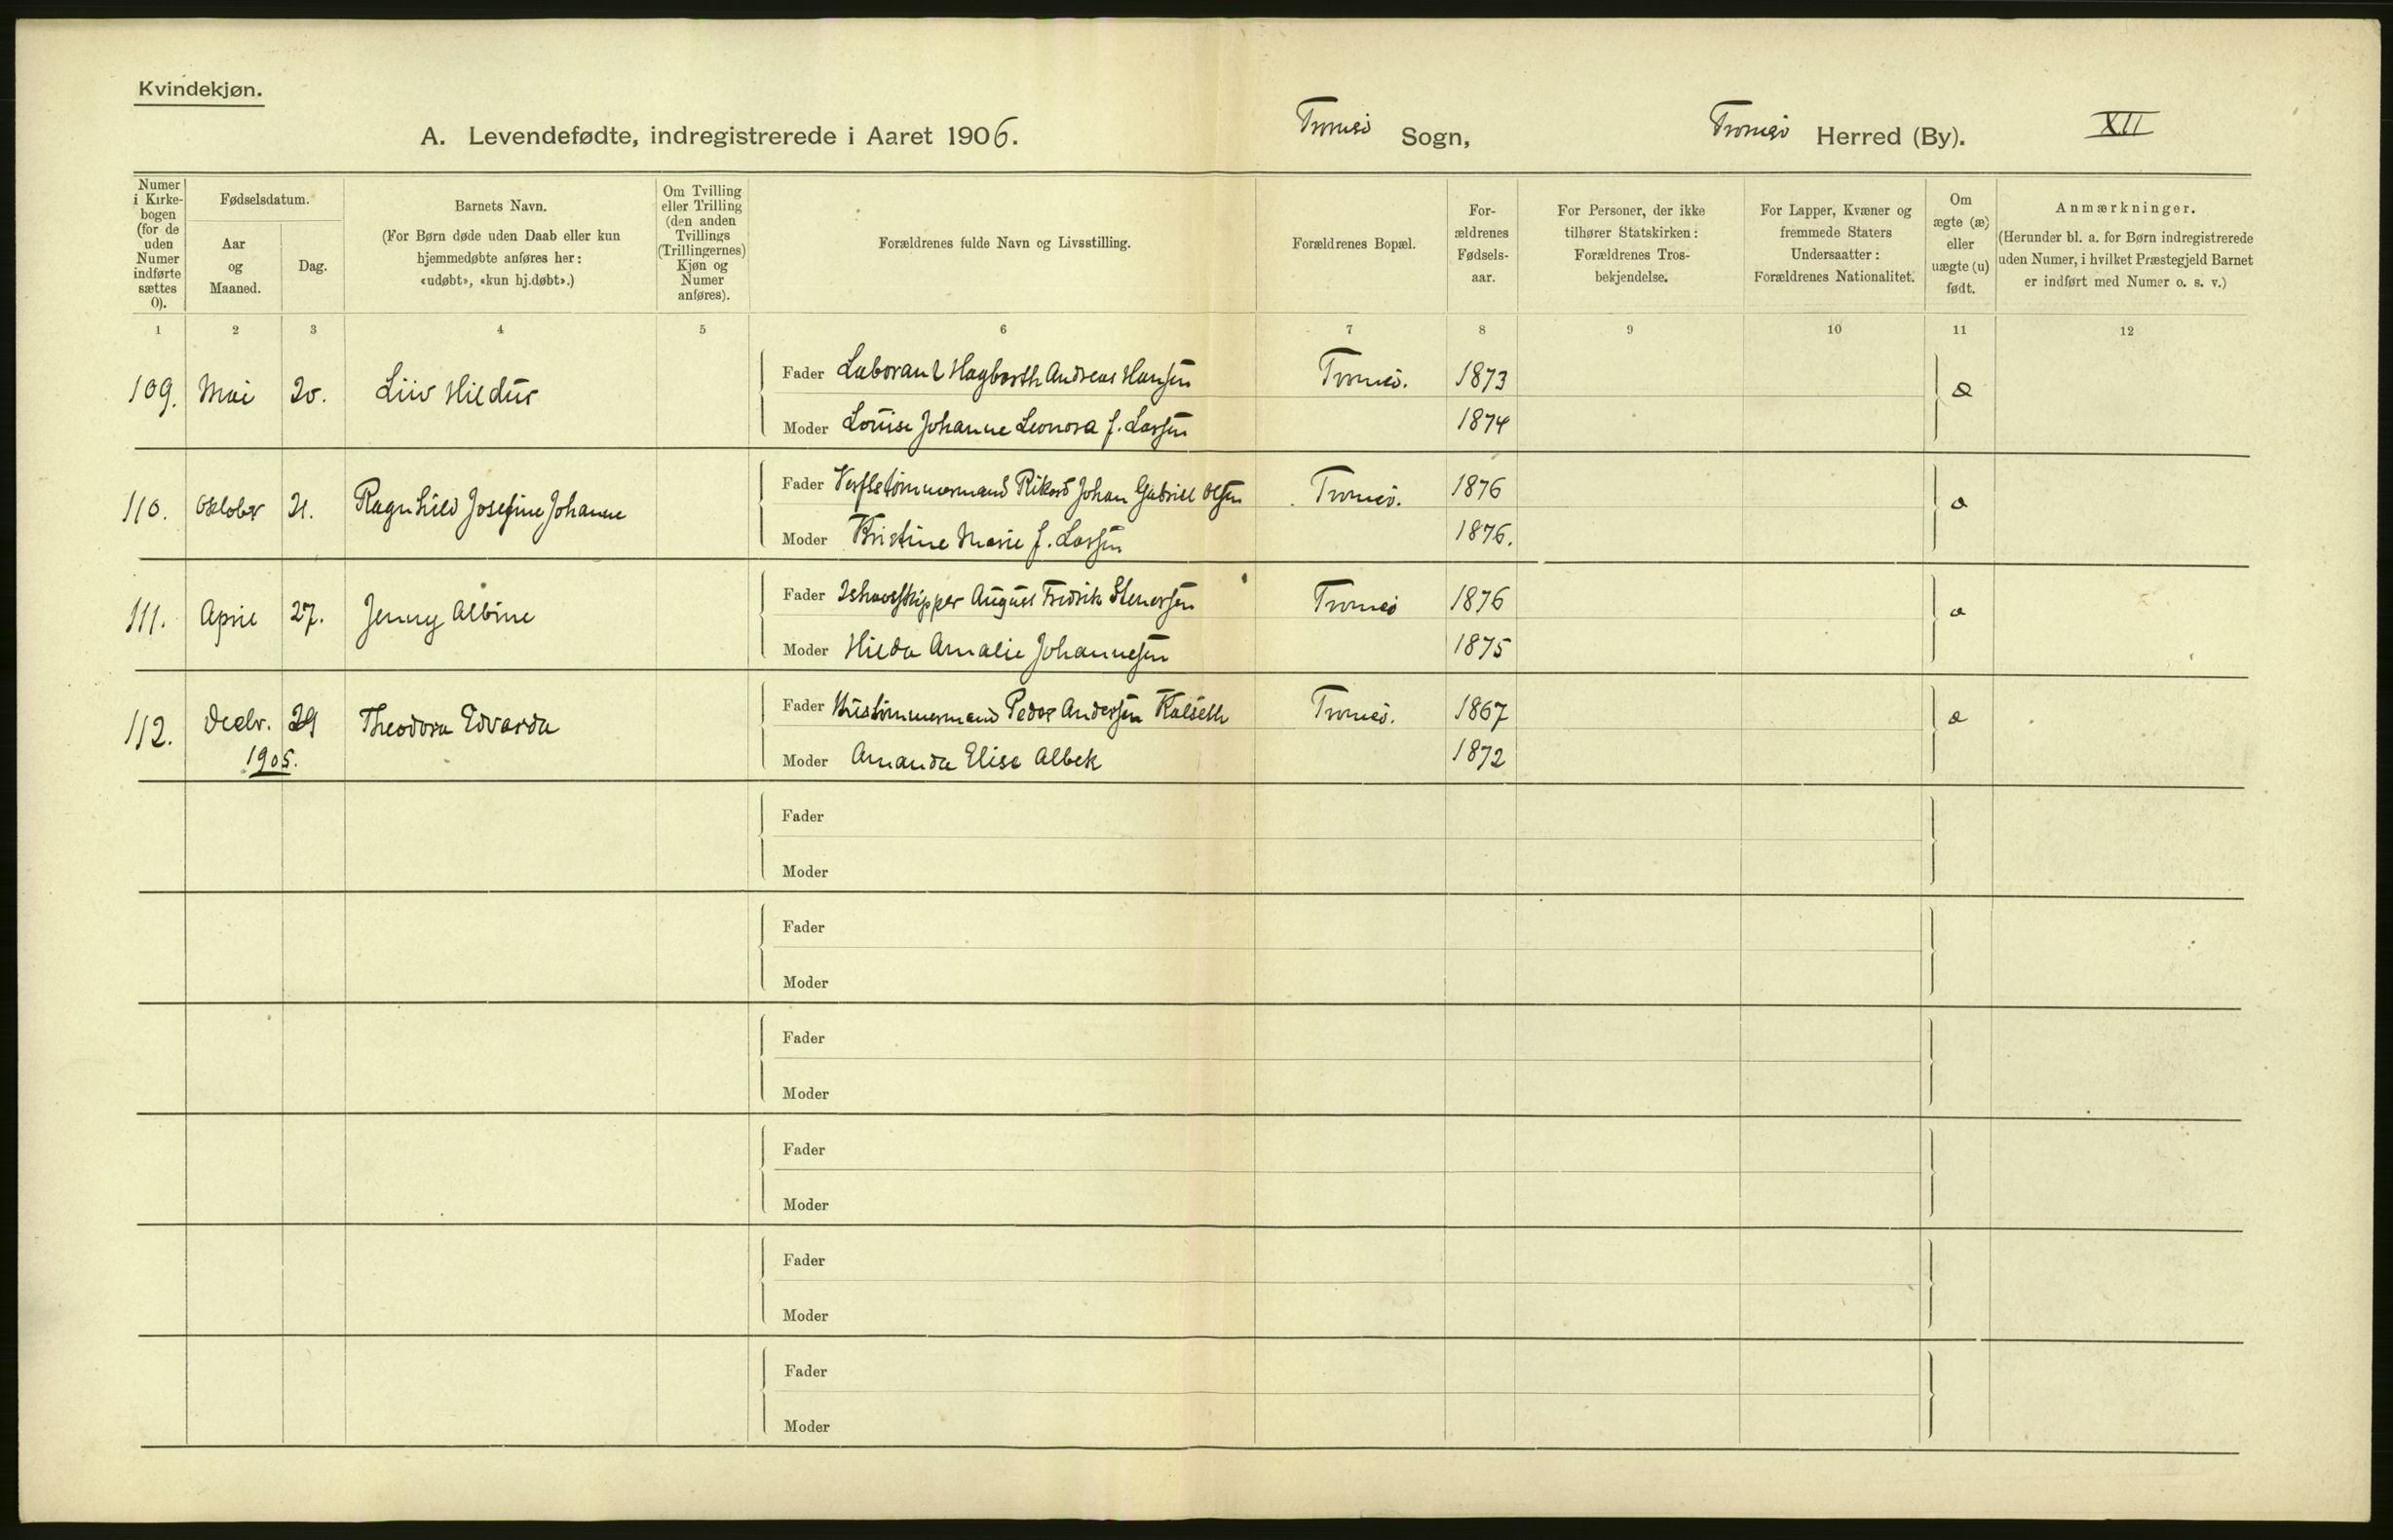 Kvindekjøn.
A. Levendefødte, indregistrerede i Aaret 1906. Tromsö Sogn, Tromsö Herred (By). XII
Numer i Kirkebogen (for de uden Numer indførte sættes 0).
Fødselsdatum.
Aar og Maaned.
Dag.
Barnets Navn.
(For Børn døde uden Daab eller kun hjemmedøbte anføres her: «udøbt», «kun hj.døbt».)
Om Tvilling eller Trilling (den anden Tvillings (Trillingernes) Kjøn og Numer anføres).
Forældrenes fulde Navn og Livsstilling.
Forældrenes Bopæl.
For-ældrenes Fødsels-aar.
For Personer, der ikke tilhører Statskirken: Forældrenes Tros-bekjendelse.
For Lapper, Kvæner og fremmede Staters Undersaatter: Forældrenes Nationalitet.
Om ægte (æ) eller uægte (u) født.
Anmærkninger.
(Herunder bl. a. for Børn indregistrerede uden Numer, i hvilket Præstegjeld Barnet er indført med Numer o. s. v.)
1 2 3 4 5 6 7 8 9 10 11 12
109. Mai 20. Liiv Hildur Fader Laborant Hagbarth Andreas Hansen Tromsö. 1873 æ
Moder Louise Johanne Leonora f. Larsen 1874
110. Oktober 21. Ragnhild Josefine Johanne Fader Verftstömmermand Rikard Johan Gabriel Olsen Tromsö. 1876 æ
Moder Kristine Marie f. Larsen 1876.
111. April 27. Jenny Albine Fader Ishavsskipper August Fredrik Stenersen Tromsö 1876 æ
Moder Hilda Amalie Johannesen 1875
112. Decbr. 29 Theodora Edvarda Fader Hustömmermand Peder Andersen Kalseth Tromsö. 1867 æ
1905. Moder Amanda Elise Albek 1872
Fader
Moder
Fader
Moder
Fader
Moder
Fader
Moder
Fader
Moder
Fader
Moder